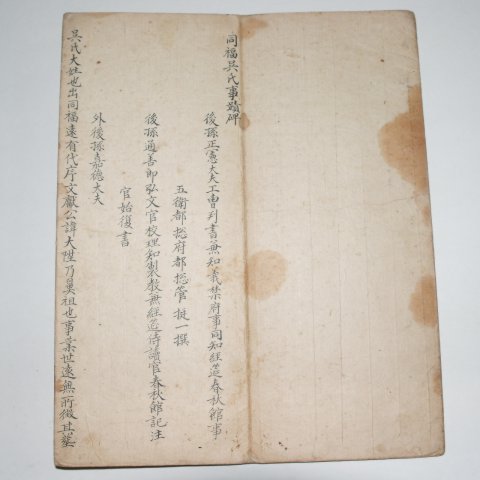 同福吳氏事蹟碑
後孫正憲大夫工曹判書兼知義禁府事同知經筵春秋館事
五衛都摠府都摠管 挺一撰
後孫通善郎弘文館校理知製敎兼經筵侍讀官春秋館記注
官始復書
外後孫嘉德大夫
吳氏大姓也出同福遠有代序文獻公諱大陞乃鼻祖也事業世遠無所徵且墓